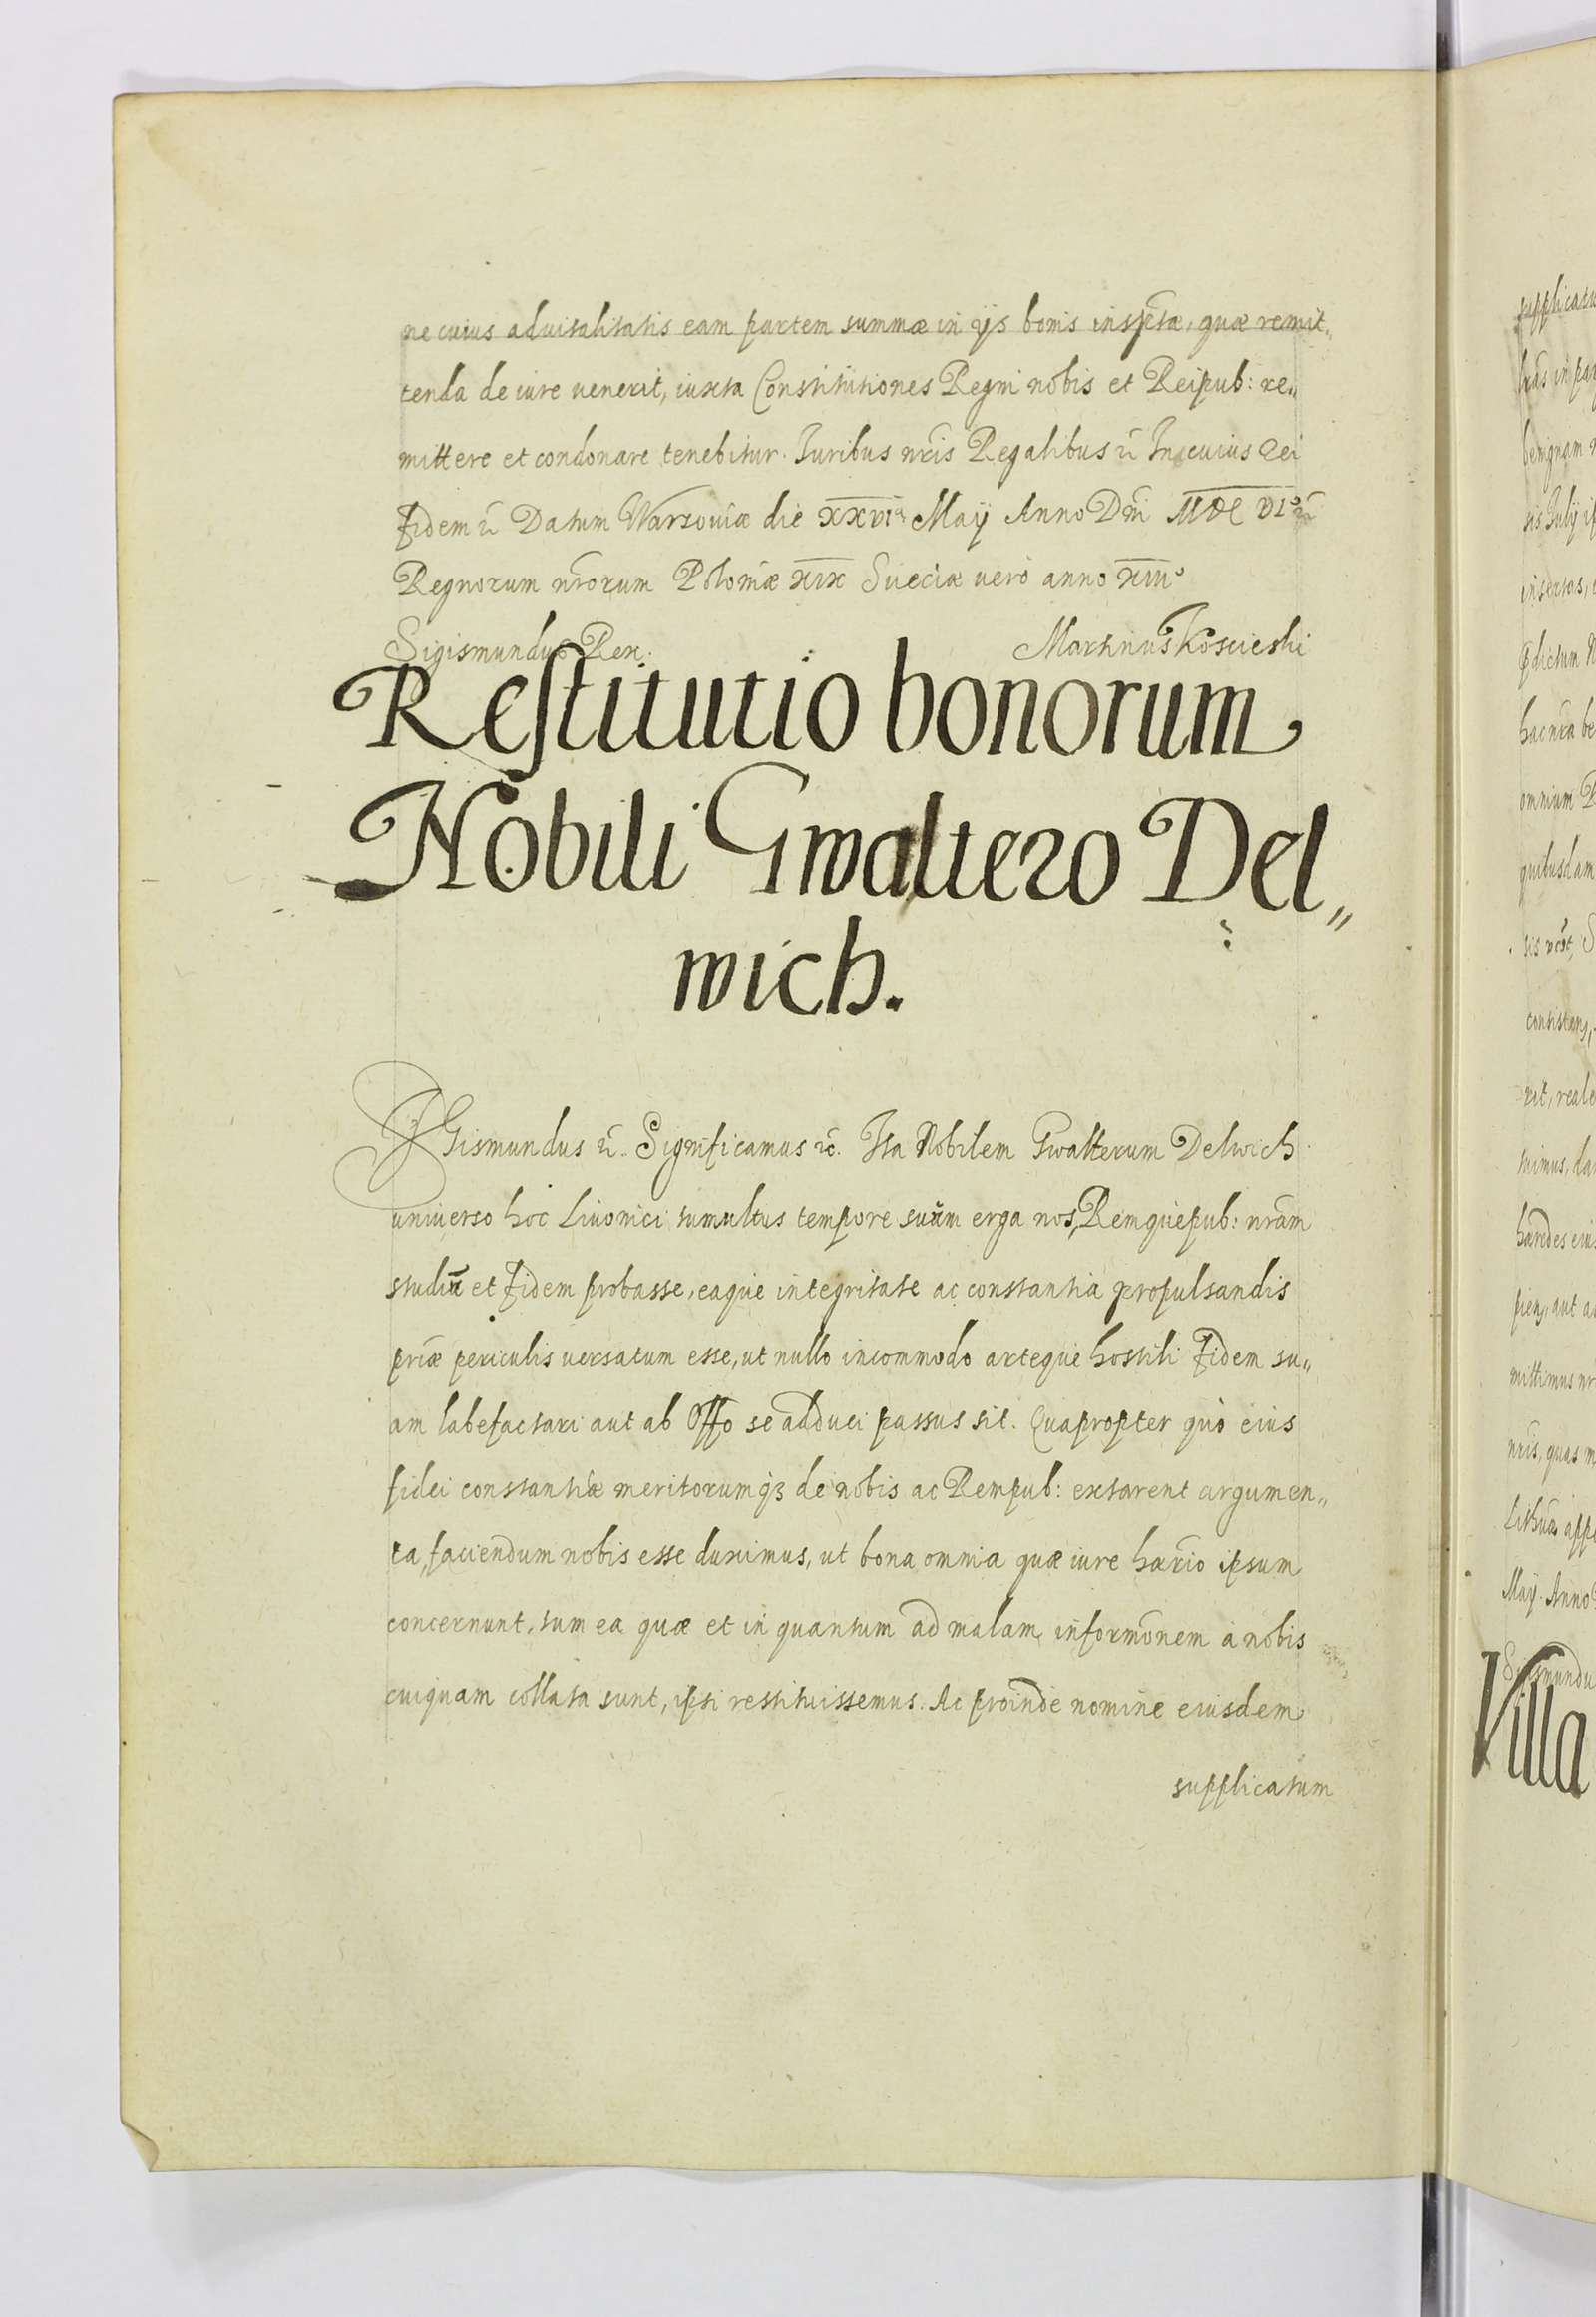 ne cuius aduitalitatis eam partem summæ in ijs bonis inscptæ, quæ remit„
tenda de iure uenerit, iuxta Constitutiones Regni nobis et Reipub: re„
mittere et condonare tenebitur. Iuribus nr̃is Regalibus etc̃ In cuius Rei
Fidem etc̃ Datum Warsouiæ die XXVIᵃ Maij Anno Dñi MDCVIº
Regnorum nr̃orum Poloniæ XIX Sueciæ vero anno XIIIº
Sigismundus Rex. Martinus Koscieski
Restitutio bonorum
Nobili Gwaltero Del„
wich.
SIGismundus etc̃. Significamus etc̃. Ita Nobilem Gwalterum Delwich
universo hoc Livonici tumultus tempore suum erga nos, Remquepub: nr̃am
studiũ et Fidem probasse, eaque integritate ac constantia propulsandis
priæ periculis versatum esse, ut nullo incommodo arteque hostili Fidem su„
am labefactari aut ab Offo se adduci passus sit. Quapropter quo eius
fidei constantiæ meritorumqʒ de nobis ac Rempub: extarent argumen„
ta, faciendum nobis esse duximus, ut bona omnia quæ iure hærio ipsum
concernunt, tum ea quæ et in quantum ad malam informõnem a nobis
cuiquam collata sunt, ipsi restituissemus. Ac proinde nomine eiusdem
supplicatum
Villa